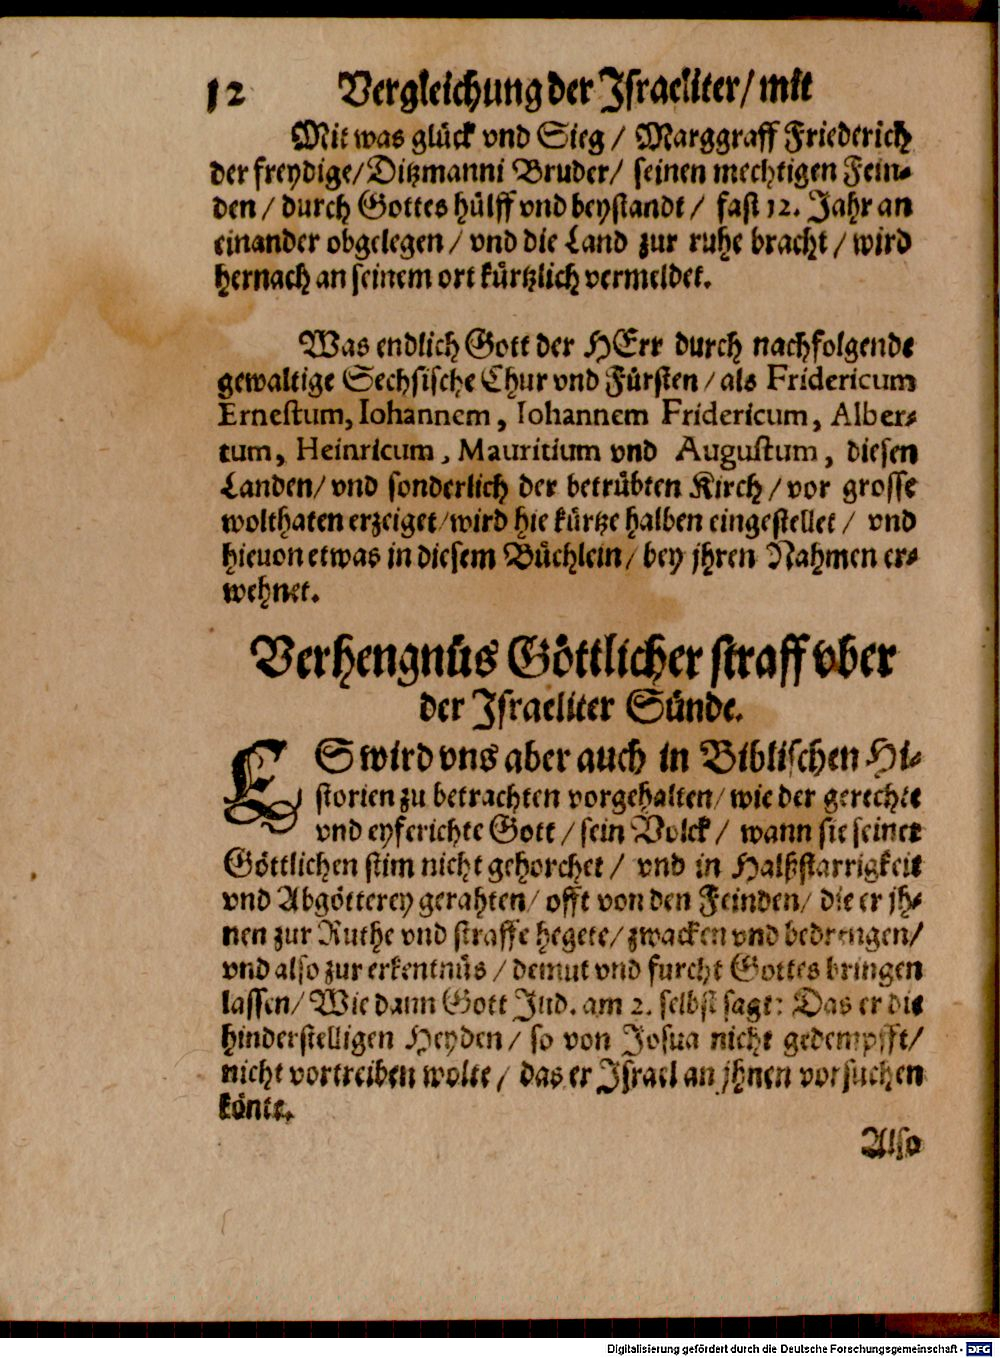 12 Vergleichung der Israeliter/ mit
Mit was glück vnd Sieg / Marggraff Friederich
der freydige/ Ditzmanni Bruder/ seinen mechtigen Fein-
den / durch Gottes hülff vnd beystandt / fast 12. Jahr an
einander obgelegen / vnd die Land zur ruhe bracht / wird
hernach an seinem ort kürtzlich vermeldet.
Was endlich Gott der HErr durch nachfolgende
gewaltige Sechsische Chur vnd Fürsten / als Fridericum
Ernestum, Iohannem, Iohannem Fridericum, Alber-
tum, Heinricum, Mauritium vnd Augustum, diesen
Landen/ vnd sonderlich der betrübten Kirch / vor grosse
wolthaten erzeiget/ wird hie kürtze halben eingestellet / vnd
hieuon etwas in diesem Büchlein / bey jhren Nahmen er-
wehnet.
Verhengnüs Göttlicher straff vber
der Israeliter Sünde.
ES wird vns aber auch in Biblischen Hi-
storien zu betrachten vorgehalten/ wie der gerechte
vnd eyferichte Gott / sein Volck / wann sie seiner
Göttlichen stim nicht gehorchet / vnd in Halßstarrigkeit
vnd Abgötterey gerahten/ offt von den Feinden/ die er jh-
nen zur Ruthe vnd straffe hegete/ zwacken vnd bedrengen/
vnd also zur erkentnüs / demut vnd furcht Gottes bringen
lassen/ Wie dann Gott Jud. am 2. selbst sagt: Das er die
hinderstelligen Heyden / so von Josua nicht gedempfft/
nicht vortreiben wolte / das er Israel an jhnen vorsuchen
könte.
Also
Digitalisierung gefördert durch die Deutsche Forschungsgemeinschaft - DFG